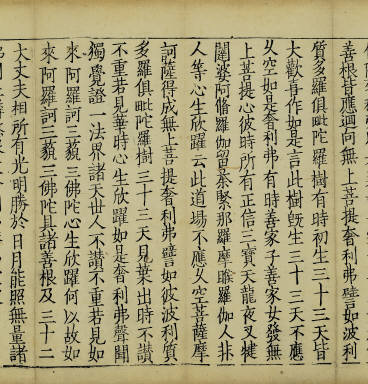 善根皆應迴向無上菩提奢利弗譬如波利
質多羅俱毗陀羅樹有時初生三十三天皆
大歡喜作如是言此樹旣生三十三天不應
久空如是奢利弗有時善家子善家女發無
上菩提心彼時所有正信三寶天龍夜叉揵
闥婆阿脩羅伽留茶緊那羅摩睺羅伽人非
人等心生欣躍云此道場不應久空菩薩摩
訶薩得成無上菩提奢利弗譬如彼波利質
多羅俱毗陀羅樹三十三天見葉出時不讚
不重若見華時心生欣躍如是奢利弗聲聞
獨覺證一法界諸天世人不讚不重若見如
來阿羅訶三藐三佛陀心生欣躍何以故如
來阿羅訶三藐三佛陀具諸善根及三十二
大丈夫相所有光明勝於日月能照無量諸